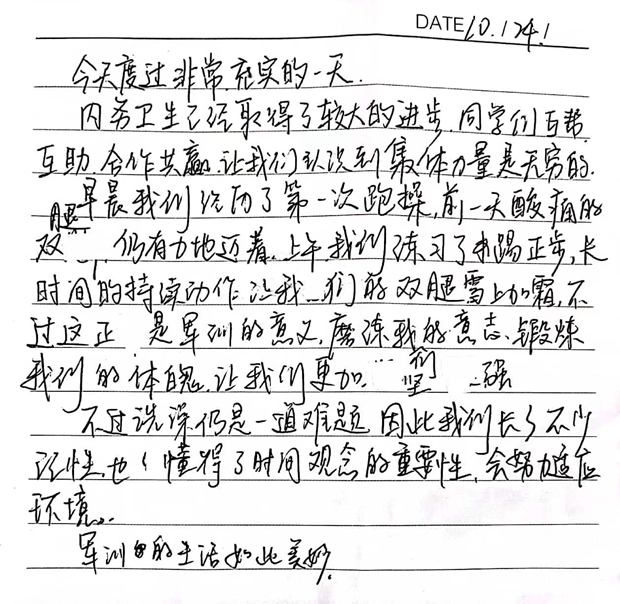 DATE 10.1241
今天度过非常充实的一天.
内务卫生已经取得了较大的进步.同学们互帮
互助,合作共赢.让我们认识到集体力量是无穷的.
早晨我们经历了第一次跑操,前一天酸痛的
双腿仍有力地迈着.上午我们练习了踢正步,长
时间的持续动作让我们的双腿雪上加霜,不
过这正是军训的意义,磨练我的意志、锻炼
我们的体魄.让我们更加坚强
不过洗澡仍是一道难题.因此我们长了不少
记性.也懂得了时间观念的重要性,会努力适应
环境..
军训的生活如此美妙.